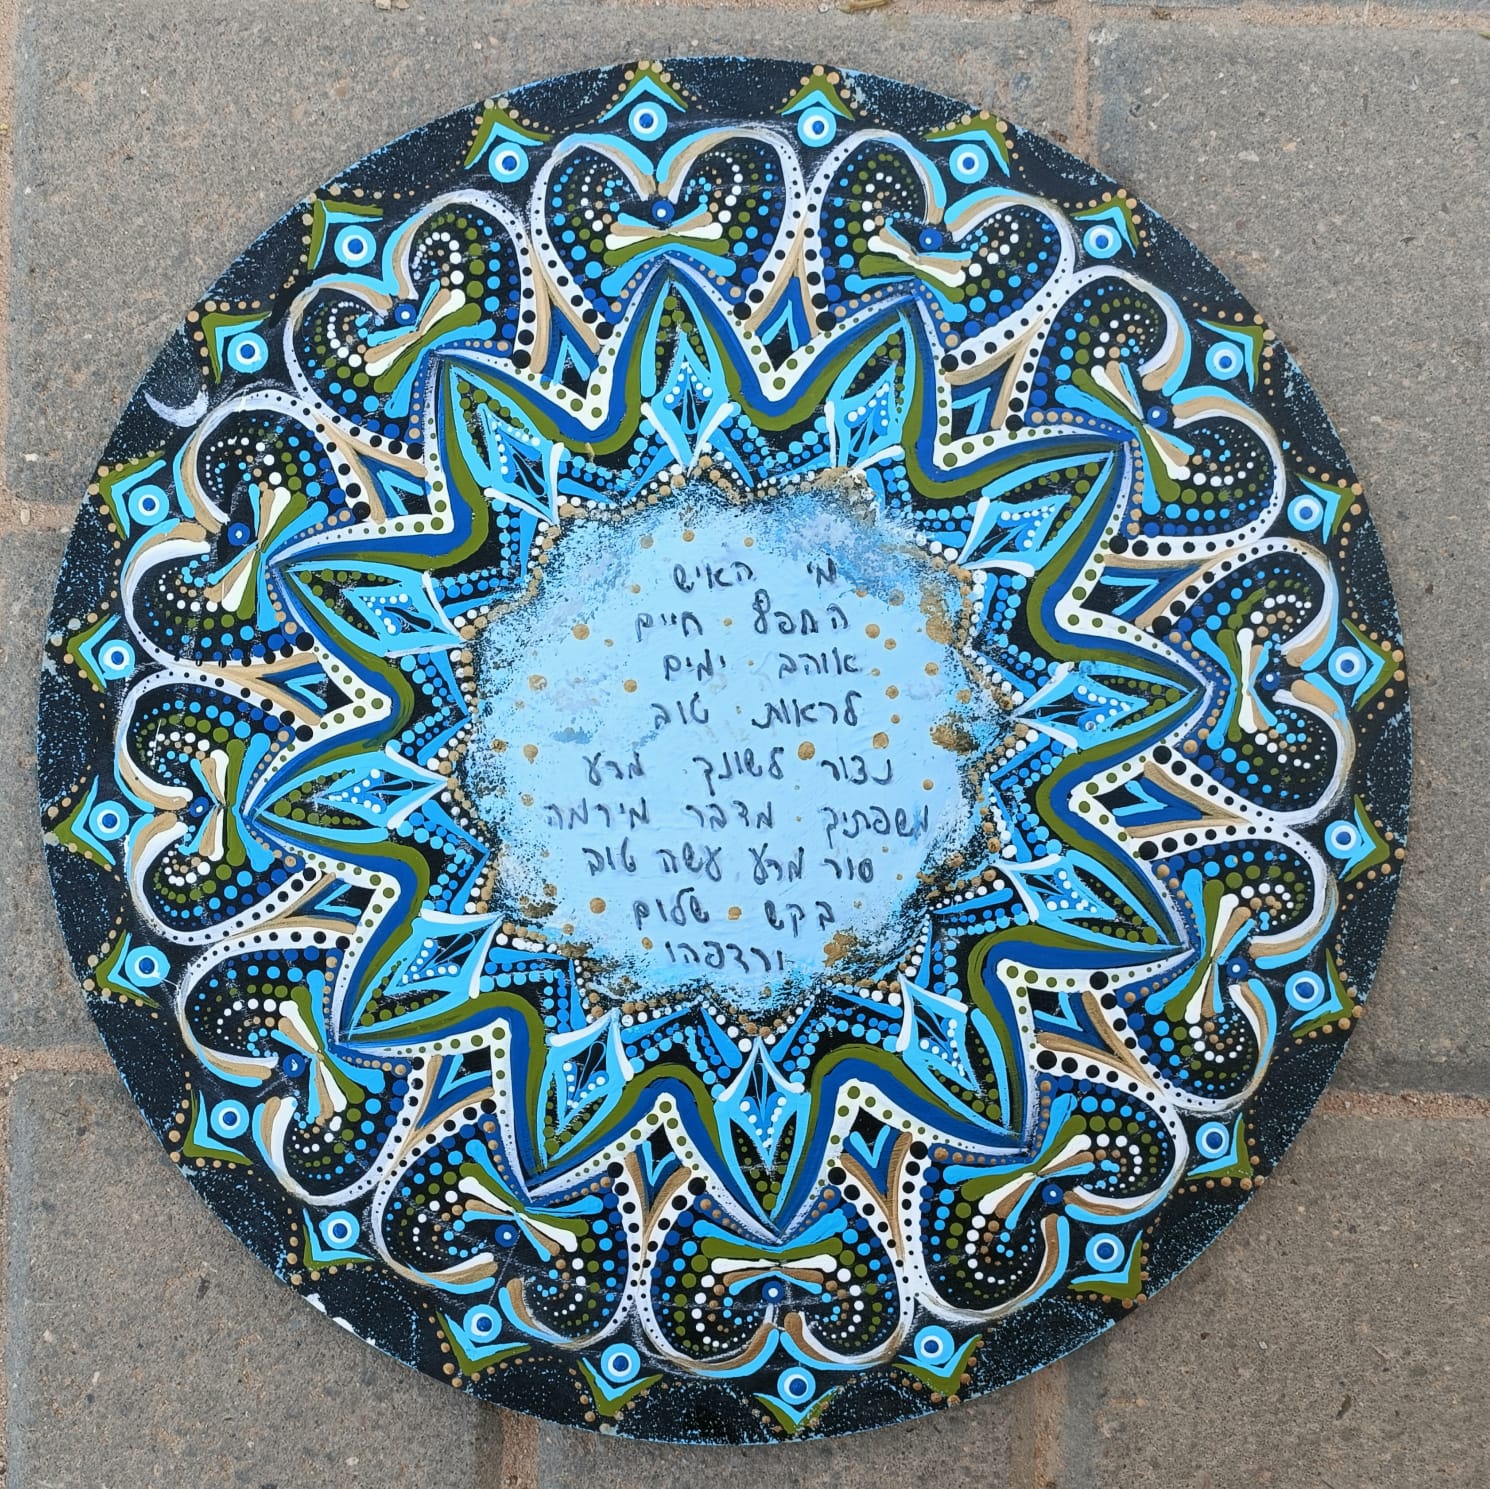 מי האיש
החפץ חיים
אוהב ימים
לראות טוב
נצור לשונך מרע
משפתיך מדבר מירמה
סור מרע עשה טוב
בקש שלום
ורדפהו